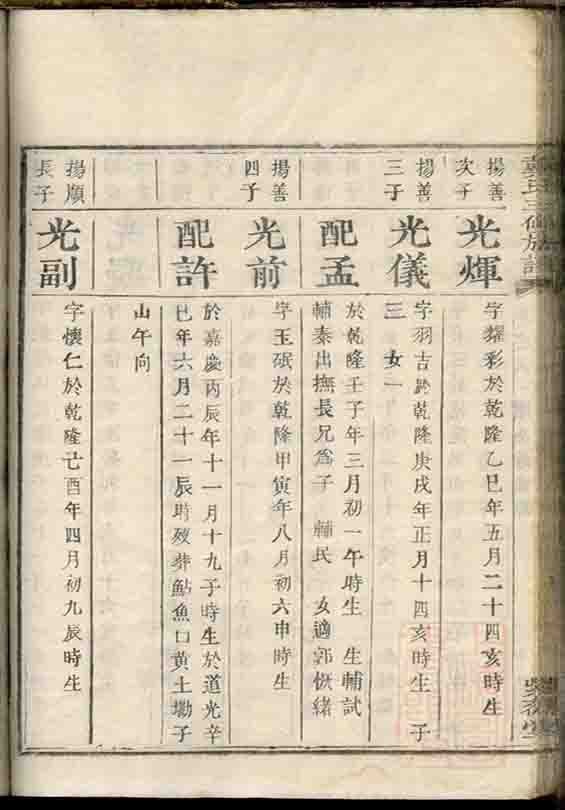 揚善次子
光煇
字耀彩於乾隆乙巳年五月二十四亥時生
揚善三子
光儀
字羽吉於乾隆庚戌年正月十四亥時生 子
三 女一
配孟
於乾隆壬子年三月初一午時生 生輔試
輔秦出撫長兄為子 輔民 女適郭恢緒
揚善四子
光前
字玉珉於乾隆甲寅年八月初六申時生
配許
於嘉慶丙辰年十一月十九子時生於道光辛
巳年六月二十一辰時歿葬鮎魚口黃土墈子
山午向
揚順長子
光副
字懷仁於乾隆己酉年四月初九辰時生